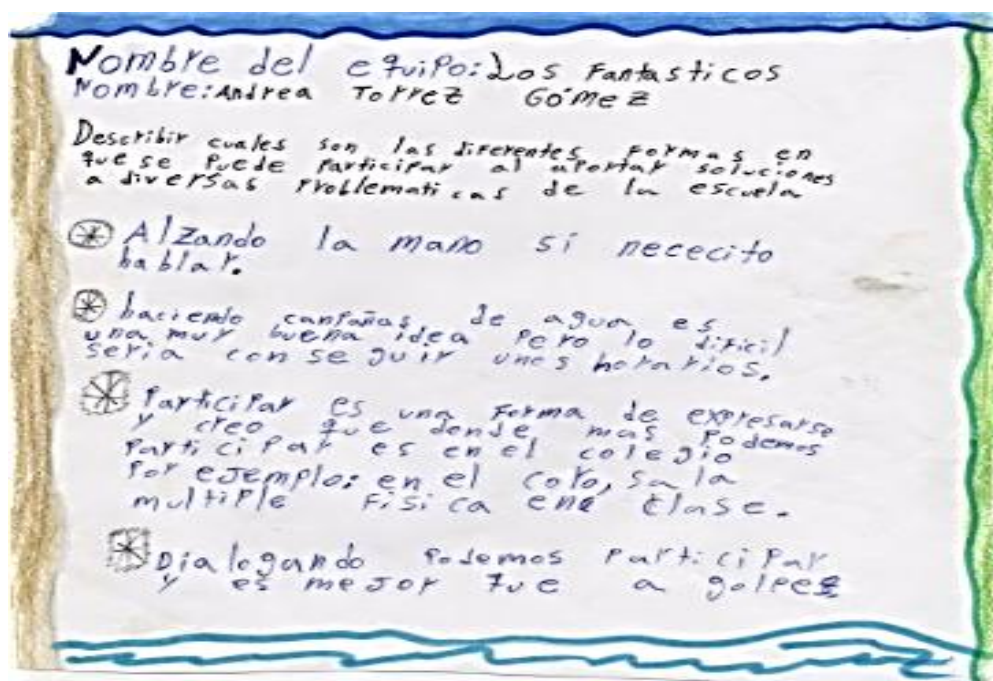 Nombre del equipo: Los Fantasticos
Nombre: Andrea Torrez Gómez
Describir cuales son las diferentes formas en
que se puede participar al aportar soluciones
a diversas problematicas de la escuela
Alzando la mano si nececito
hablar.
haciendo canpañas de agua es
una muy buena idea pero lo dificil
seria conseguir unos horarios.
Participar es una forma de expresarse
y creo que donde mas podemos
participar es en el colegio
por ejemplo: en el coro, sala
multiple fisica en clase.
Dialogando podemos participar
y es mejor que a golpes